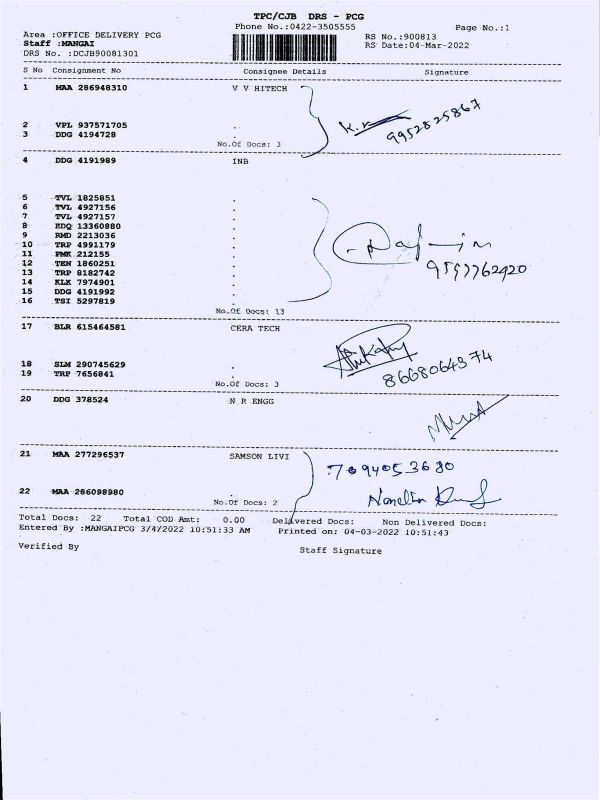 TPC/CJB DRS - PCG
Phone No.:0422-3505555 Page No.:1
Area :OFFICE DELIVERY PCG RS No.:900813
Staff :MANGAI RS Date:04-Mar-2022
DRS No. :DCJB90081301
S No Consignment No Consignee Details Signature
1 MAA 286948310 V V HITECH
9952825867
2 VPL 937571705 .
3 DDG 4194728 .
No.Of Docs: 3
4 DDG 4191989 INB
5 TVL 1825851 .
6 TVL 4927156 .
7 TVL 4927157 .
8 EDQ 13360880 .
9 RMD 2213036 .
10 TRP 4991179 .
11 PMK 212155 .
12 TEN 1860251 .
13 TRP 8182742 .
14 KLK 7974901 .
15 DDG 4191992 .
16 TSI 5297819 .
No.Of Docs: 13
17 BLR 615464581 CERA TECH
18 SLM 290745629 .
19 TRP 7656841 .
8668064374
No.Of Docs: 3
20 DDG 378524 N R ENGG
21 MAA 277296537 SAMSON LIVI
7094053680
22 MAA 286098980 .
No.Of Docs: 2
Total Docs: 22 Total COD Amt: 0.00 Delivered Docs: Non Delivered Docs:
Entered By :MANGAIPCG 3/4/2022 10:51:33 AM Printed on: 04-03-2022 10:51:43
Verified By Staff Signature